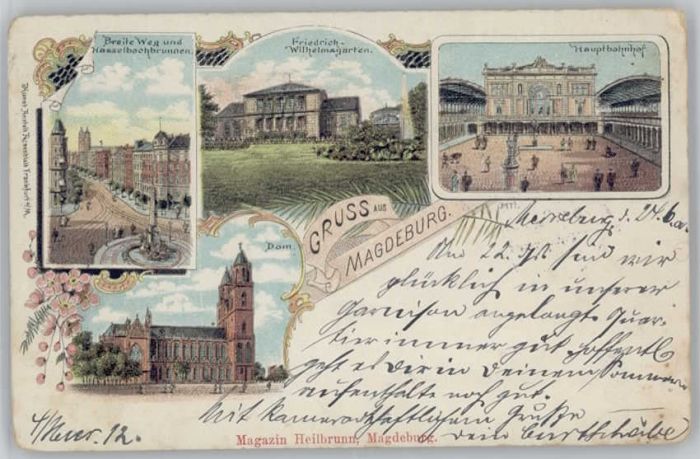 Breite Weg und
Hasselbachbrunnen.
Friedrich-
Wilhelmsgarten.
Hauptbahnhof
Dom.
GRUSS AUS
MAGDEBURG.
24.6.
Am 22. sind wir
glücklich in unserer
Garnison angelangt Quar-
tier immer gut hoffentl
geht es dir in Deinem Sommer
aufenthalte noch gut.
Mit kameradschaftlichem Gruße
dein
12.
Magazin Heilbrunn, Magdeburg.